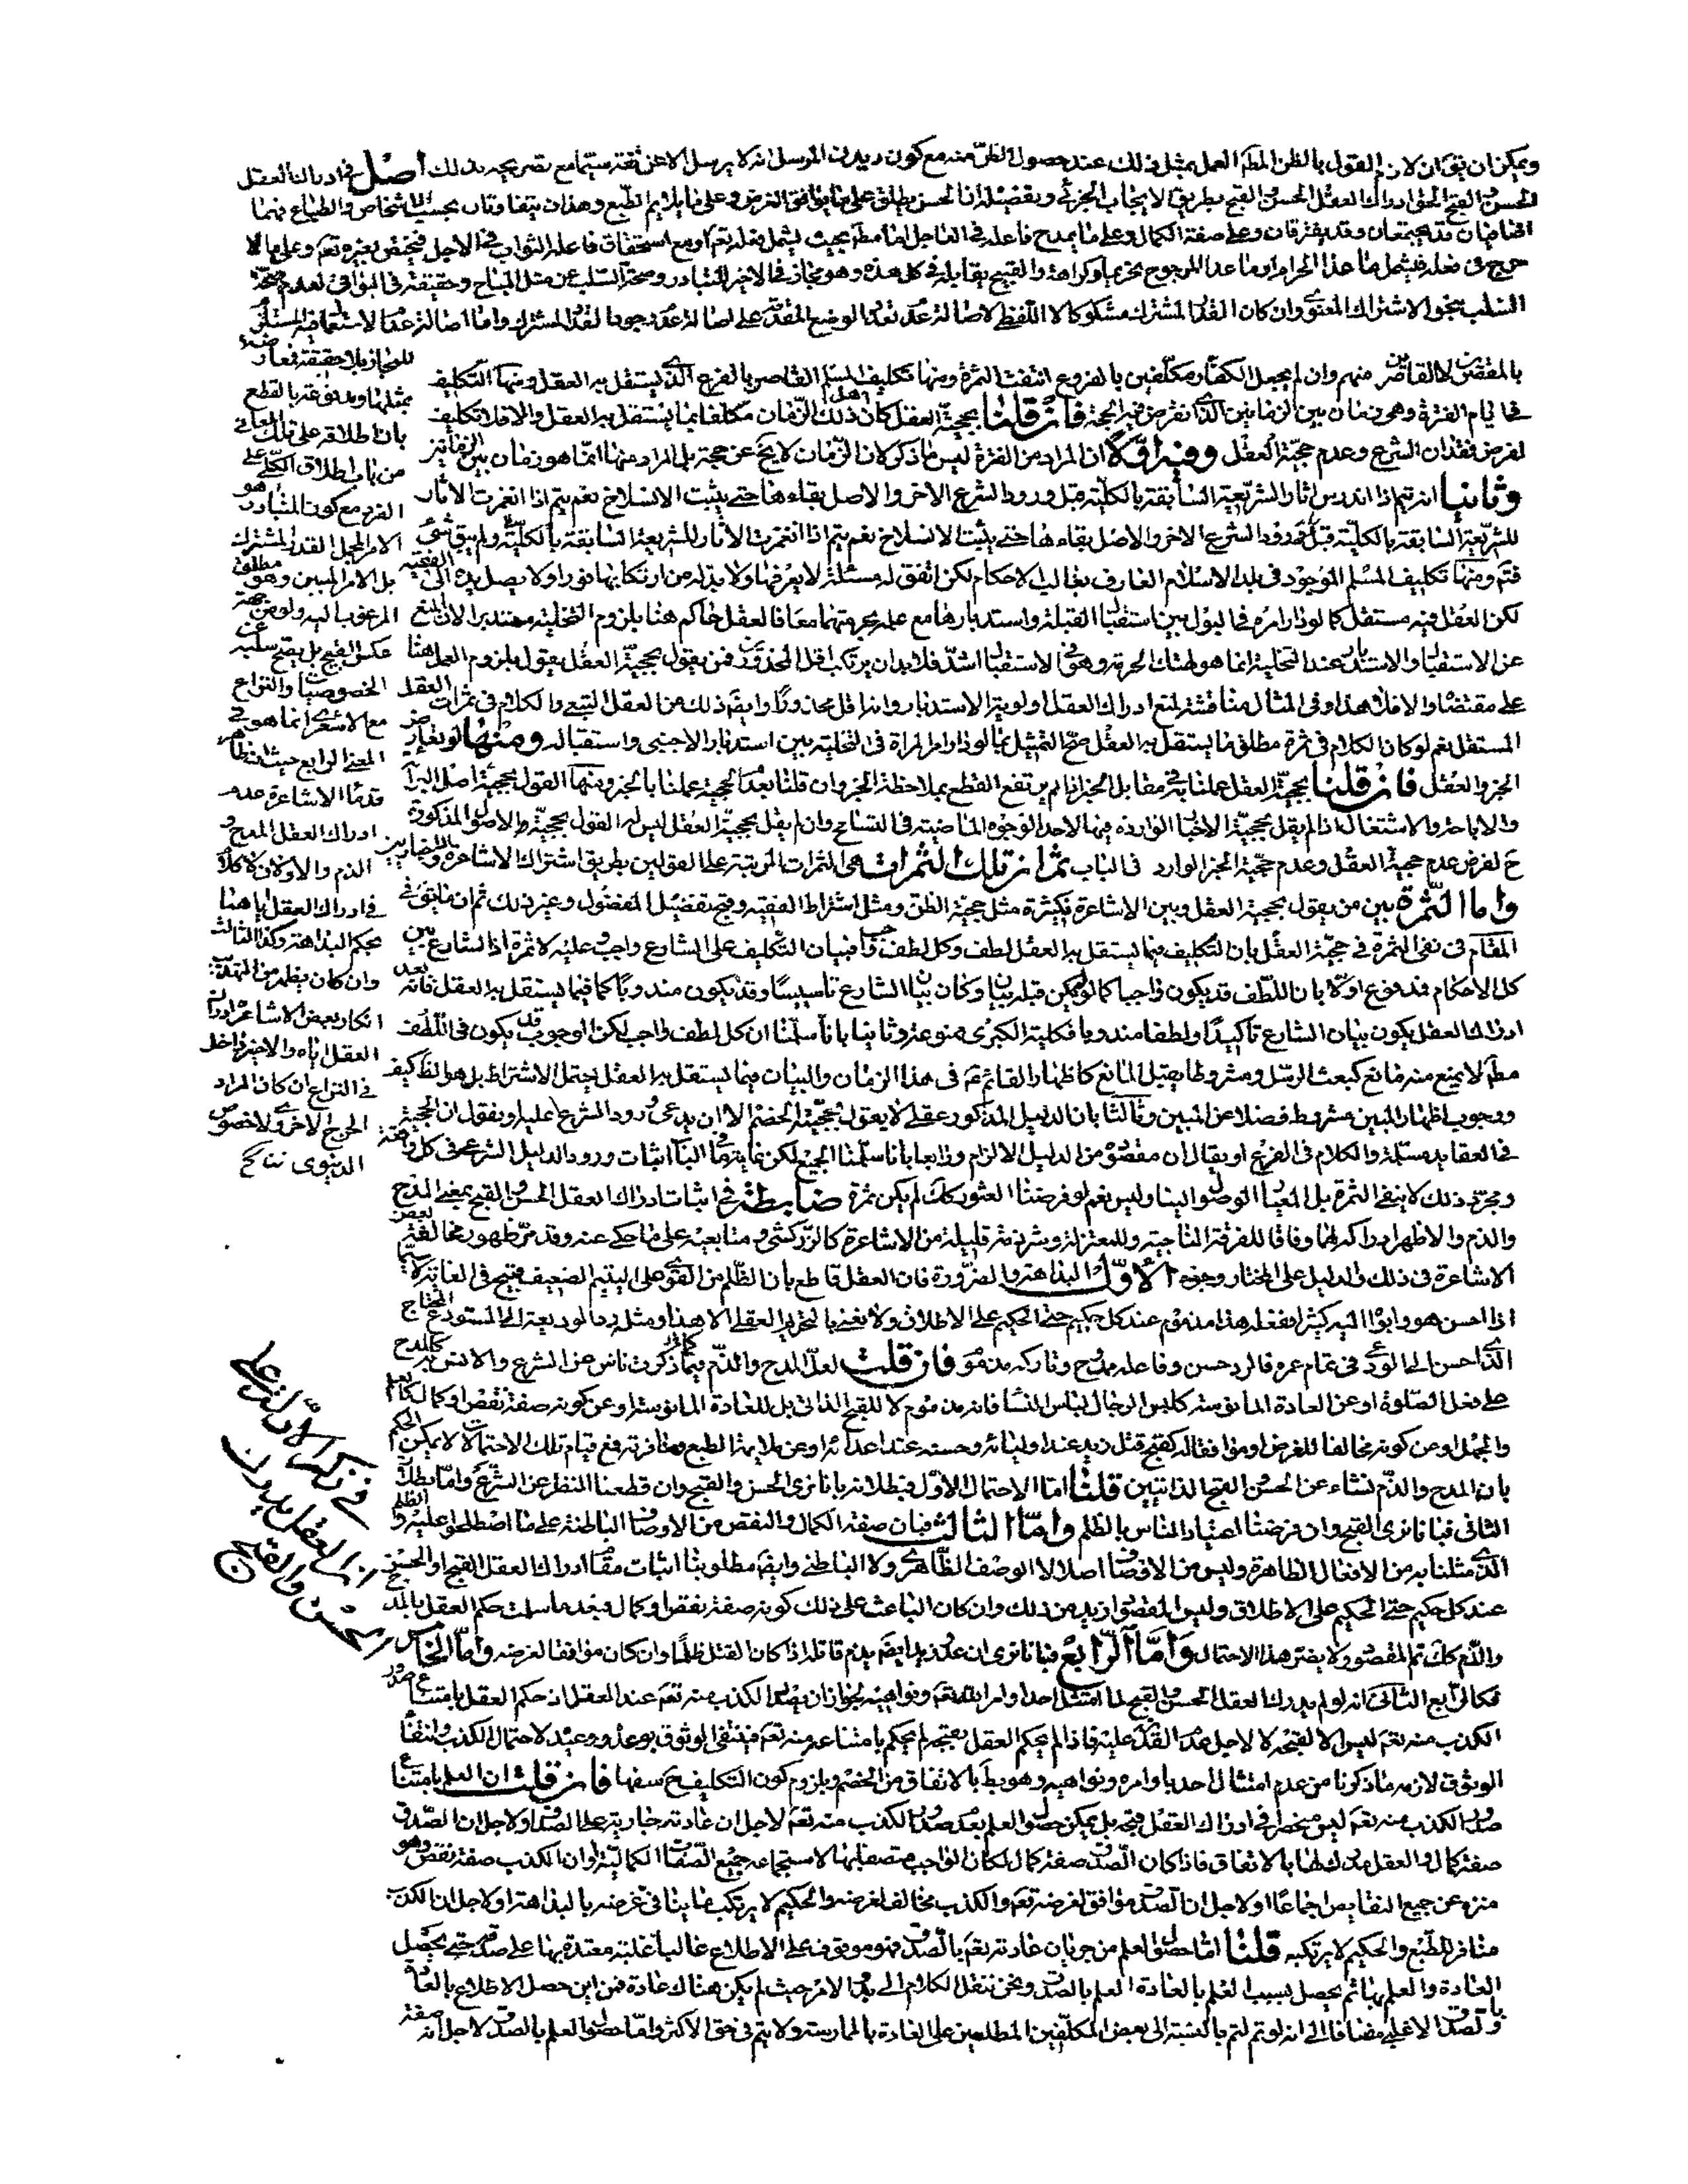 ويمكن ان يق ان لازم القول بالظن المطم العمل بمثل ذلك عند حصول الظن منه مع كون ديدن المرسل انه لا يرسل الا عن ثقة سيما مع تصريحه بذلك اصل في ادراك العقل
الحسن والقبح الحق ادراك العقل الحسن والقبح بطريق الايجاب الجزئي وتفصيله ان الحسن يطلق على ما يوافق الغرض وعلى ما يلايم الطبع وهذان يتفاوتان بحسب الاشخاص والطباع
قد يجتمعان وقد يفترقان وعلى صفة الكمال وعلى ما يمدح فاعله في العاجل اما مطم بحيث يشمل فعله تعم او مع استحقاق فاعله الثواب في الاجل فيختص بغيره تعم وعلى ما لا
حرج في فعله فيشمل ما عدا الحرام او ما عدا المرجوح تحريما وكراهة والقبيح يقابله في كل هذه وهو مجاز في الاخير للتبادر وصحة السلب عن مثل المباح وحقيقة في البواقي لعدم صحة
السلب بنحو الاشتراك المعنوي وان كان القدر المشترك مشكوكا لا اللفظي لاصالة عدم تعدد الوضع المقدم على اصالة عدم وجود القدر المشترك واما اصالة عدم الاستعمال في المشترك
بالمقصرين لا القاصرين منهم وان لم يجعل الكفار مكلفين بالفروع انتفت الثمرة ومنها تكليف المسلم القاصر بالفرع الذي يستقل به العقل ومنها التكليف
في ايام الفترة وهي زمان بين الزمانين الذي نفرض فيه الحجة فان قلنا بحجية العقل كان اهل ذلك الزمان مكلفا بما يستقل به العقل والا فلا تكليف
لفرض فقدان الشرع وعدم حجية العقل وفيه اولا ان المراد من الفترة ليس ما ذكر لان الزمان لا يخ عن حجة بل المراد منها انما هو زمان بين الزمانين
وثانيا انه يتم اذا اندرس اثار الشريعة السابقة بالكلية قبل ورود الشرع الاخر والاصل بقاءها حتى يثبت الانسلاخ نعم يتم اذا انغمرت الاثار
للشريعة السابقة بالكلية قبل ورود الشرع الاخر والاصل بقاءها حتى يثبت الانسلاخ نعم يتم اذا انغمرت الاثار للشريعة السابقة بالكلية ولم يبق شئ
فتم ومنها تكليف المسلم الموجود في بلد الاسلام العارف بغالب الاحكام لكن اتفق له مسئلة لا يعرفها ولا بد له من ارتكابها فورا ولا يصل يده الى الفقيه
لكن العقل فيه مستقل كما لو دار امره في البول بين استقبال القبلة واستدبارها مع علمه بحرمتهما معا فالعقل حاكم هنا بلزوم التخلية مستدبرا لان المنع
عن الاستقبال والاستدبار عند التخلية انما هو لهتك الحرمة وهو في الاستقبال اشد فلا بد ان يرتكب اقل المحذورين فمن يقول بحجية العقل يقول بلزوم العمل هنا
على مقتضاه والا فلا هذا وفي المثال مناقشة لمنع ادراك العقل اولوية الاستدبار وانه اقل محذورا وايضا ذلك من العقل التبعي والكلام في ثمرات العقل
المستقل نعم لو كان الكلام في ثمرة مطلق ما يستقل به العقل صح التمثيل بما لو دار امر المراة في التخلية بين استدبار الاجنبي واستقباله ومنها لو تعارض
الخبر والعقل فان قلنا بحجية العقل عملنا به في مقابل الخبر اذا لم يرتفع القطع بملاحظة الخبر وان قلنا بعدم الحجية عملنا بالخبر ومنها القول بحجية اصل البرائة
والاباحة والاشتغال اذا لم يقل بحجية الاخبار الواردة فيها لاحد الوجوه الماضية في التسامح وان لم يقل بحجية العقل ليس له القول بحجية الاصول المذكورة
ح لفرض عدم حجية العقل وعدم حجية الخبر الوارد في الباب ثم ان تلك الثمرات هي الثمرات المترتبة على القولين بطريق اشتراك الاشاعرة
واما الثمرة بين من يقول بحجية العقل وبين الاشاعرة فكثيرة مثل حجية الظن ومثل اشتراط الفقيه وقبح تفضيل المفضول وغير ذلك ثم ان ما يق في
المقام في نفي الثمرة في حجية العقل بان التكليف فيما يستقل به العقل لطف وكل لطف واجب فبيان التكليف على الشارع واجب وعليه لا ثمرة اذ الشارع بين
كل الاحكام فمدفوع اولا بان اللطف قد يكون واجبا كما لو لم يكن قبله بيان وكان بيان الشارع تاسيسا وقد يكون مندوبا كما فيما يستقل به العقل فانه بعد
ادراك العقل يكون بيان الشارع تاكيدا ولطفا مندوبا فكلية الكبرى ممنوعة وثانيا بانا سلمنا ان كل لطف واجب لكن الوجوب قد يكون في اللطف
مطم لا يمنع منه مانع كبعث الرسل ومشروطا بعدم المانع كاظهار القائم عم في هذا الزمان والبيان فيما يستقل به العقل يحتمل الاشتراط بل هو الظ كيف
ووجوب اظهار المبين مشروط فضلا عن المبين وثالثا بان الدليل المذكور عقلي لا يقول بحجيته الخصم الا ان يدعي ورود الشرع عليه او نقول ان الحجية
في العقايد مسلمة والكلام في الفرع او يقال ان مقصوده من الدليل الالزام ورابعا بانا سلمنا الجميع لكن غاية ما في الباب اثبات ورود الدليل الشرعي في كل واقعة
ومجرد ذلك لا ينفي الثمرة بل المعيار الوصول الينا وليس نعم لو فرضنا العثور كك لم يكن ثمرة ضابطة في اثبات ادراك العقل الحسن والقبح بمعنى المدح
والذم والاظهر ادراكه لهما وفاقا للفرقة الناجية وللمعتزلة وشرذمة قليلة من الاشاعرة كالزركشي ومتابعيه على ما حكي عنه وقد مر ظهور مخالفة بعض
الاشاعرة في ذلك والدليل على المختار وجوه الاول البداهة والضرورة فان العقل قاطع بان الظلم من القوي على اليتيم الضعيف قبيح في الغاية لا سيما
اذا احسن هو وابواه اليه كثيرا ففعله هذا مذموم عند كل حكيم حتى الحكيم على الاطلاق ولا نعني بالتحريم العقلي الا هذا ومثل رد المودع الوديعة الى المستودع المحتاج
الذي احسن الى المودع في تمام عمره فالرد حسن وفاعله ممدوح وتاركه مذموم فان قلت لعل المدح والذم فيما ذكرت ناش عن الشرع والانس به كالمدح
على فعل الصلوة او عن العادة المانوسة كلبس الرجال لباس النساء فانه مذموم لا للقبح الذاتي بل للعادة المانوسة او عن كونه صفة نقص او كمال كالعلم
والجهل او عن كونه مخالفا للغرض او موافقا له كقبح قتل زيد عند اوليائه وحسنه عند اعدائه او عن ملايمة الطبع ومنافرته فمع قيام تلك الاحتمالات لا يمكن الحكم
بان المدح والذم نشاء عن الحسن والقبح الذاتيين قلنا اما الاحتمال الاول فبطلانه بانا نرى الحسن والقبح وان قطعنا النظر عن الشرع واما بطلان
الثاني فبانا نرى القبح وان فرضنا اعتياد الناس بالظلم واما الثالث فبان صفة الكمال والنقص من الاوصاف الباطنة على ما اصطلحوا عليه والظلم
الذي مثلنا به من الافعال الظاهرة وليس من الاوصاف اصلا لا الوصف الظاهري ولا الباطني وايضا مطلوبنا اثبات ادراك العقل القبح او الحسن
عند كل حكيم حتى الحكيم على الاطلاق وليس المقصود ازيد من ذلك وان كان الباعث على ذلك كونه صفة نقص او كمال فبعد ما سلمت حكم العقل بالمدح
والذم كك تم المقصود ولا يضر هذا الاحتمال واما الرابع فبانا نرى ان عدو زيد ايضا يذم قاتله اذا كان القتل ظلما وان كان موافقا لغرضه واما الخامس
فكالرابع الثاني انه لو لم يدرك العقل الحسن والقبح لما امتثل احد اوامر الله تعم ونواهيه لجواز ان يصدر الكذب منه تعم عند العقل اذ حكم العقل بامتناع صدور
الكذب منه تعم ليس الا لقبحه لا لاجل عدم القدرة عليه فاذا لم يحكم العقل بقبحه لم يحكم بامتناعه منه تعم فينتفي الوثوق بوعده ووعيده لاحتمال الكذب وانتفاء
الوثوق لازمه ما ذكرنا من عدم امتثال احد باوامره ونواهيه وهو بط بالاتفاق من الخصم ويلزم كون التكليف ح سفها فان قلت ان العلم بامتناع
صدور الكذب منه تعم ليس منحصرا في ادراك العقل قبحه بل يمكن حصول العلم بعدم صدور الكذب منه تعم لاجل ان عادته جارية على الصدق او لاجل ان الصدق
صفة كمال والعقل مدرك لها بالاتفاق فاذا كان الصدق صفة كمال لكان الواجب متصفا بها لاستجماعه جميع الصفات الكمالية او ان الكذب صفة نقص وهو
منزه عن جميع النقايص اجماعا او لاجل ان الصدق موافق لغرضه تعم والكذب مخالف لغرضه والحكيم لا يرتكب ما ينافي غرضه بالبداهة او لاجل ان الكذب
منافر للطبع والحكيم لا يرتكبه قلنا اما حصول العلم من جريان عادته تعم بالصدق فهو موقوف على الاطلاع غالبا غلبة معتدة بها على صدقه حتى يحصل
العادة والعلم بها ثم يحصل بسبب العلم بالعادة العلم بالصدق ونحن ننقل الكلام الى بدو الامر حيث لم يكن هناك عادة فمن اين حصل الاطلاع بالعادة
وبالصدق الاغلبي مضافا الى انه لو تم لتم بالنسبة الى بعض المكلفين المطلعين على العادة بالممارسة ولا يتم في حق الاكثر واما حصول العلم بالصدق لاجل انه صفة
للمجاز بلا حقيقة فمعارضة
بمثلها ومدفوعة بالقطع
بان اطلاقه على تلك المعاني
من باب اطلاق الكلي على
الفرد مع كون المتبادر هو
الامر المجمل القدر المشترك
بل الامر المبين وهو مطلق
المرغوب اليه ولو من جهة
عكس القبيح بل يقبح سلبه عن
الخصوصيات والنزاع
مع الاشعري انما هو في
المعنى الرابع حيث
قدماء الاشاعرة عدم
ادراك العقل المدح و
الذم والاولان لا كلام
في ادراك العقل اياهما
بحكم البداهة وكذا الثالث
وان كان يظهر من
انكار بعض الاشاعرة ادراك
العقل اياه والاخير داخل
في النزاع ان كان المراد
الحرج الاخروي لا خصوص
الدنيوي نتائج
في ذكر الادلة على
ان العقل يدرك
الحسن والقبح